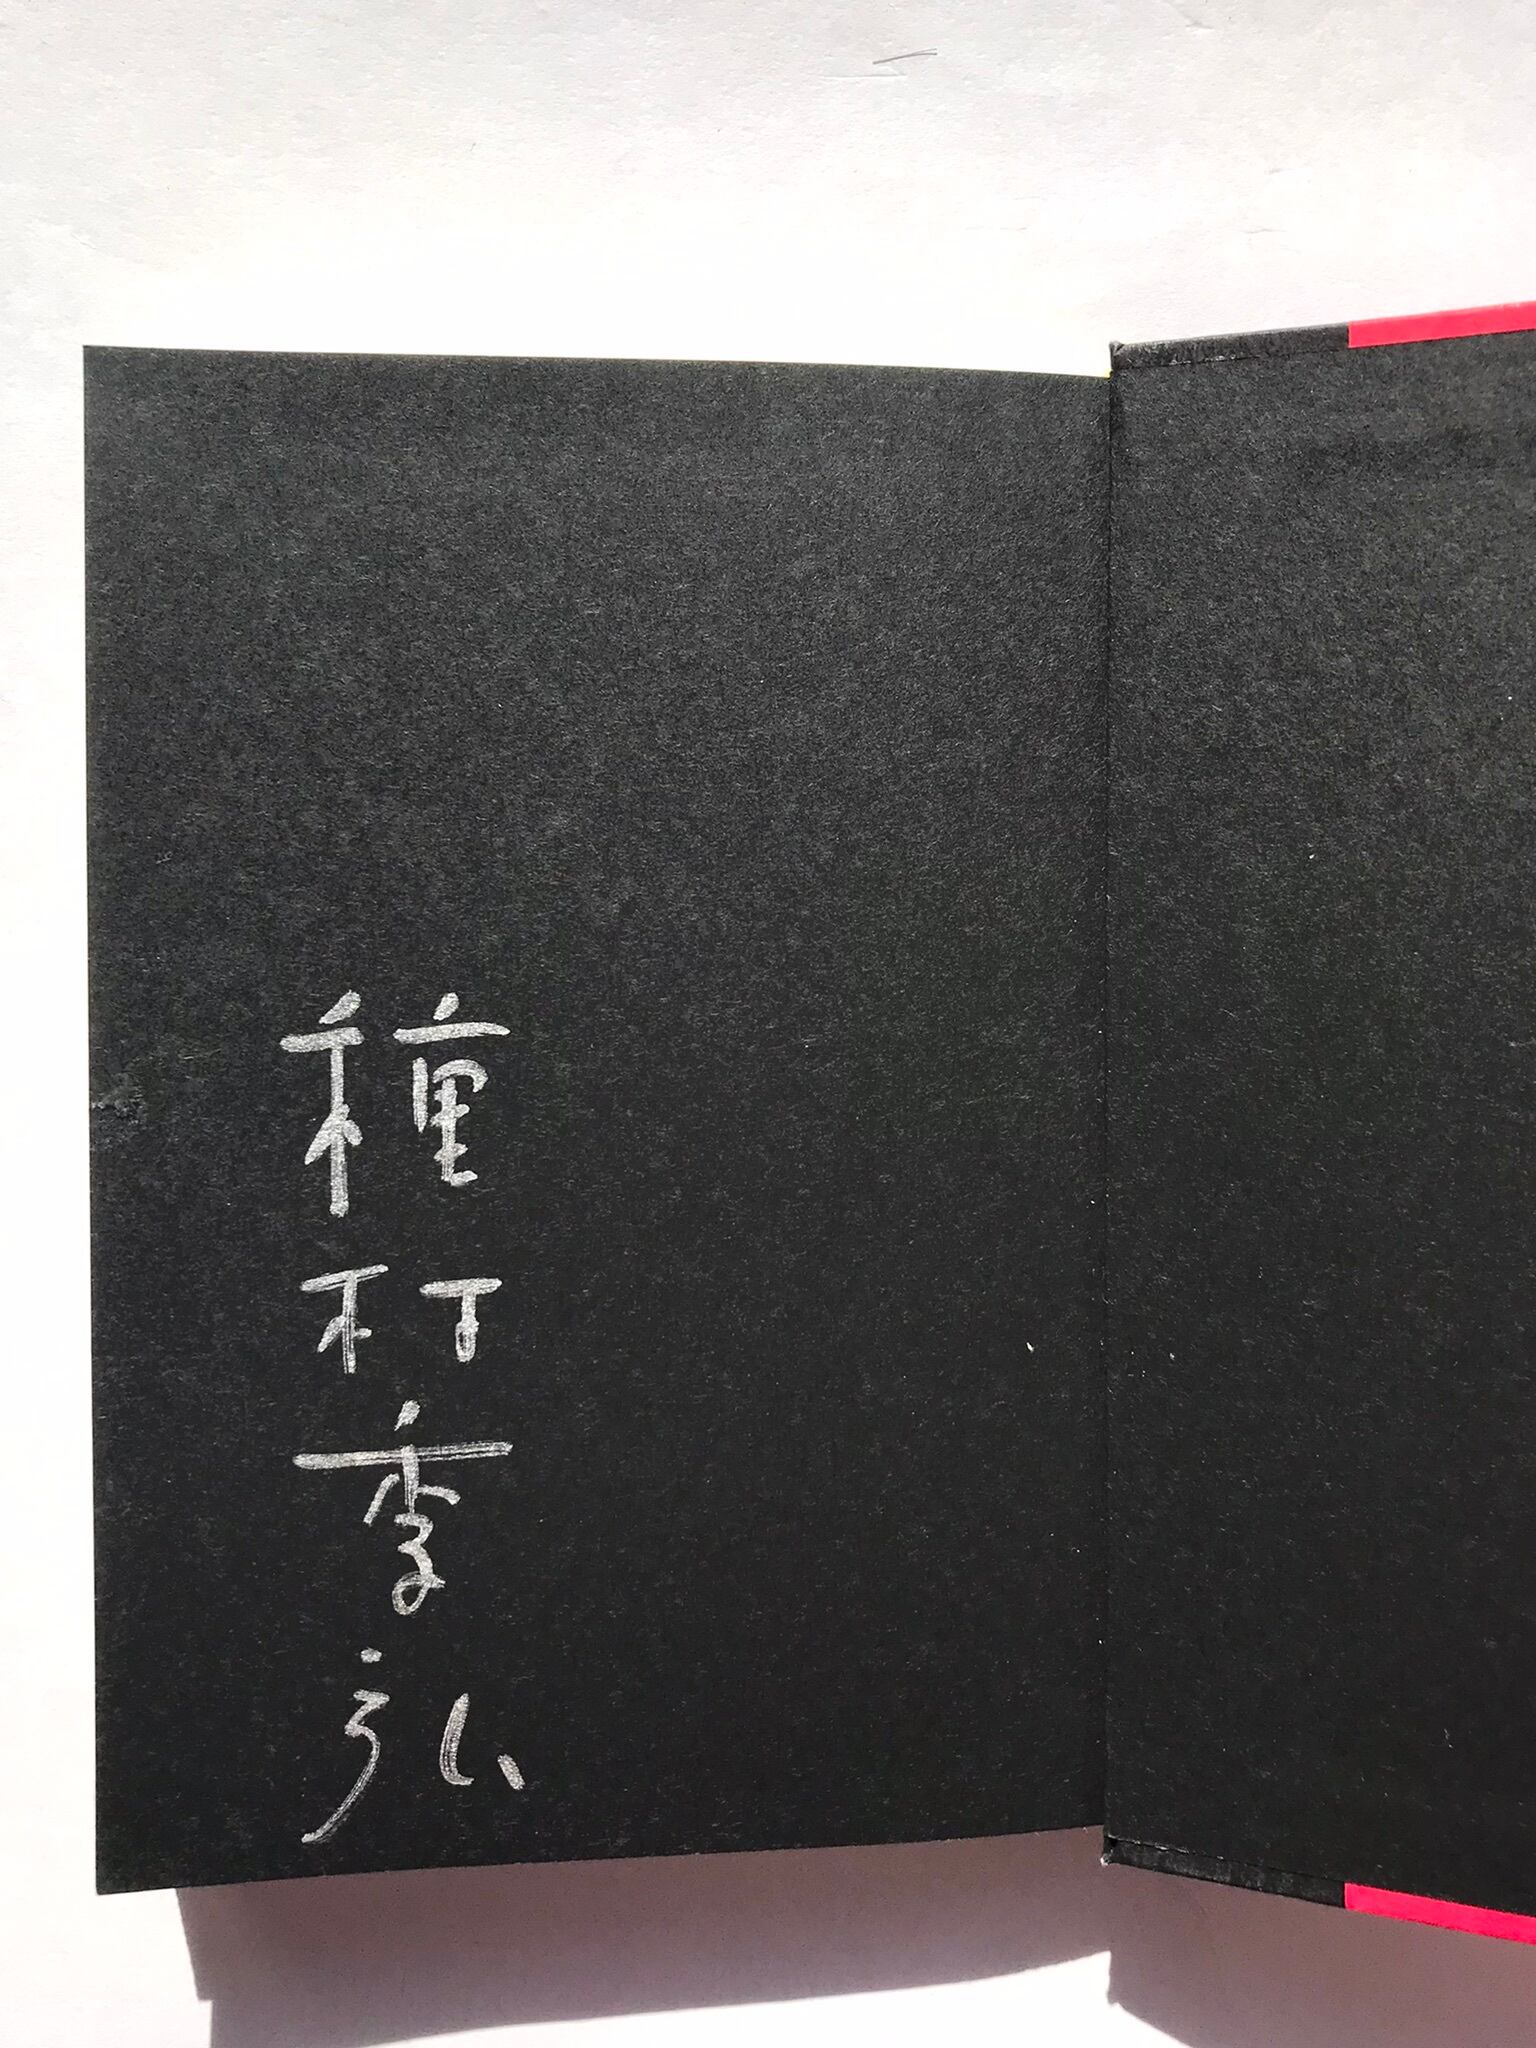 種村季弘